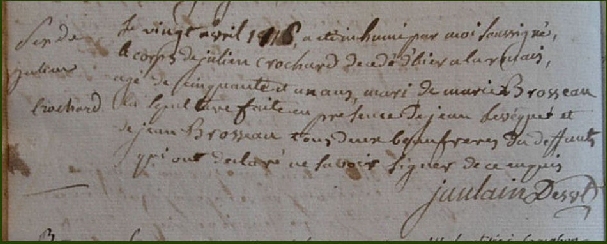 Sre de
julien
Crochard
Le vingt avril 1776, a été inhumé par moi soussigné,
le corps de julien Crochard decedé d'hier a la
agé de cinquante et un ans, mari de marie Brosseau
la sepulture faite en presence de jean et
de jean Brosseau tous deux beaufreres du deffunt
qui ont declaré ne savoir signer de ce enquis